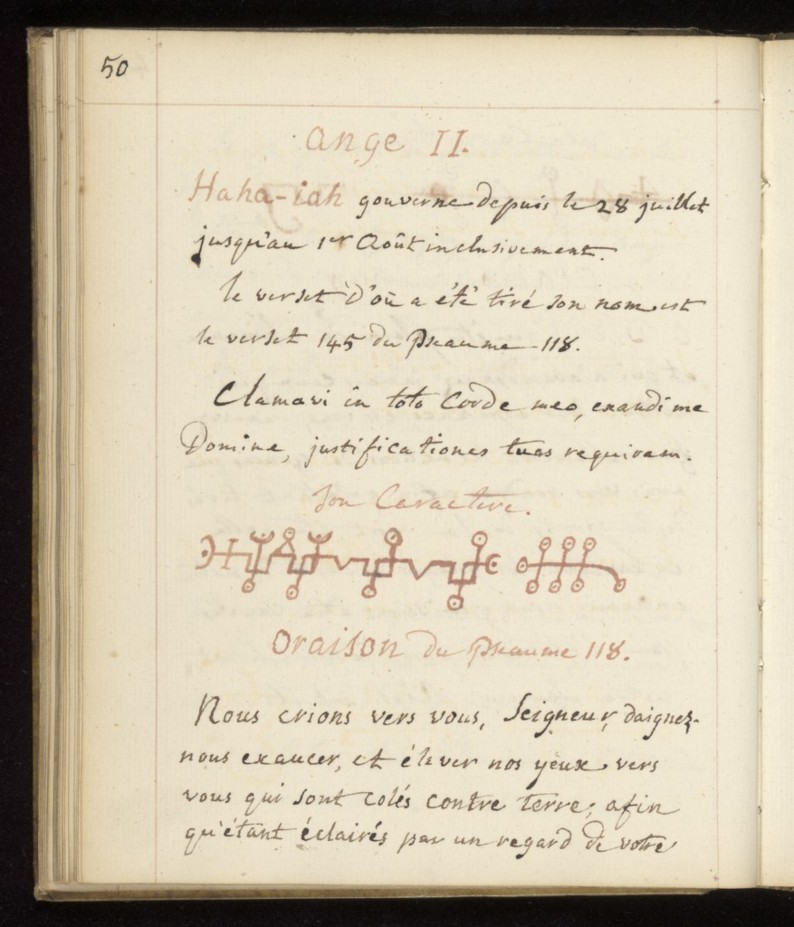 50
Ange II.
Haha-iah gouverne depuis le 28 juillet
jusqu'au 1er Août inclusivement.
le verset d'où a été tiré son nom est
le verset 145 du Pseaume 118.
Clamavi in toto Corde meo, exaudi me
Domine, justificationes tuas requiram.
Son Caractere.
Oraison du Pseaume 118.
Nous crions vers vous, Seigneur, daignez-
nous exaucer, et élever nos yeux vers
vous qui sont colés contre terre; afin
qu'étant éclairés par un regard de votre